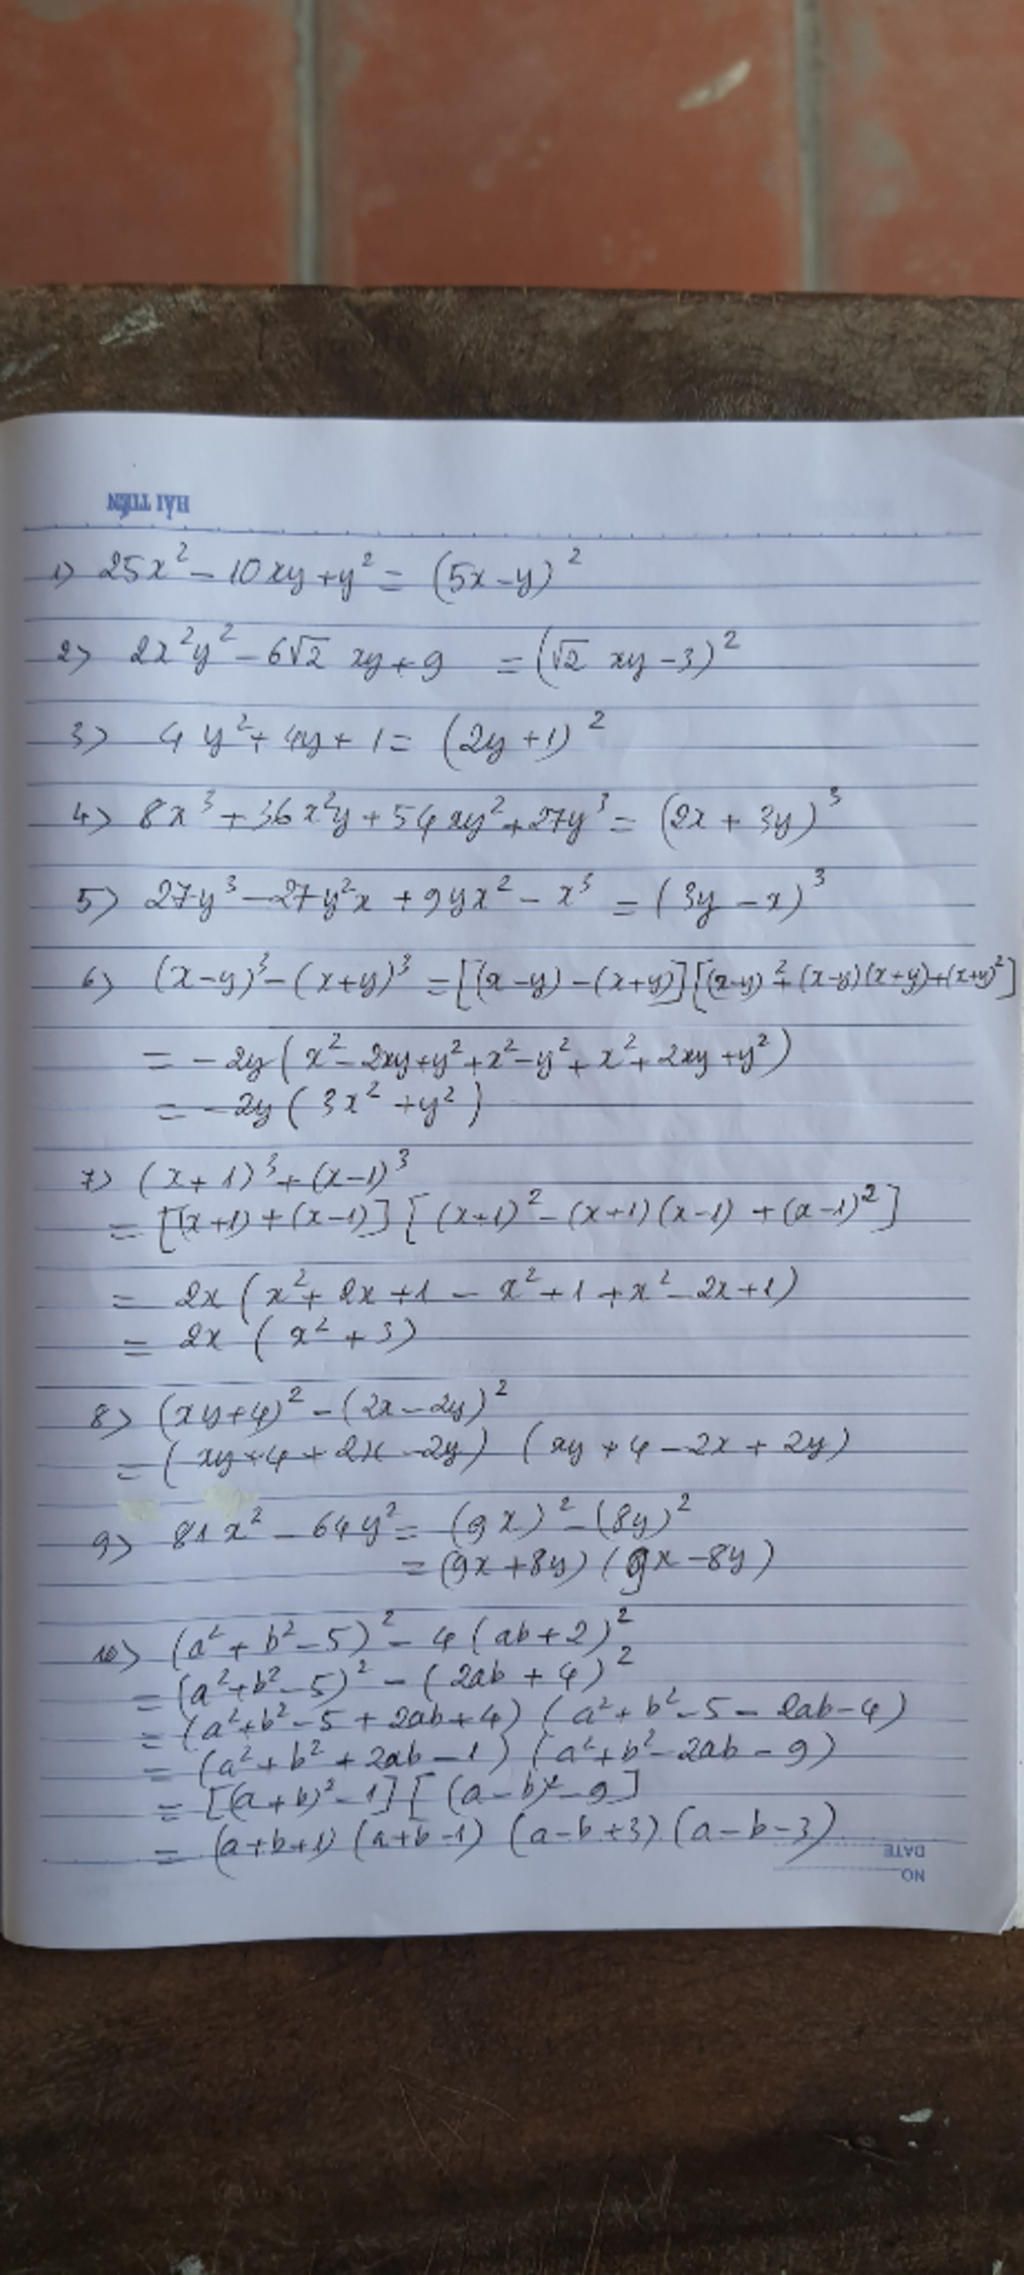 HẢI TIẾN
1) 25x² - 10xy + y² = (5x - y)²
2) 2x²y² - 6√2 xy + 9 = (√2 xy - 3)²
3) 4y² + 4y + 1 = (2y + 1)²
4) 8x³ + 36x²y + 54xy² + 27y³ = (2x + 3y)³
5) 27y³ - 27y²x + 9yx² - x³ = (3y - x)³
6) (x - y)³ - (x + y)³ = [(x - y) - (x + y)][(x - y)² + (x - y)(x + y) + (x + y)²]
= -2y(x² - 2xy + y² + x² - y² + x² + 2xy + y²)
= -2y(3x² + y²)
7) (x + 1)³ + (x - 1)³
= [(x + 1) + (x - 1)][(x + 1)² - (x + 1)(x - 1) + (x - 1)²]
= 2x(x² + 2x + 1 - x² + 1 + x² - 2x + 1)
= 2x(x² + 3)
8) (xy + 4)² - (2x - 2y)²
= (xy + 4 + 2x - 2y)(xy + 4 - 2x + 2y)
9) 81x² - 64y² = (9x)² - (8y)²
= (9x + 8y)(9x - 8y)
10) (a² + b² - 5)² - 4(ab + 2)²
= (a² + b² - 5)² - (2ab + 4)²
= (a² + b² - 5 + 2ab + 4)(a² + b² - 5 - 2ab - 4)
= (a² + b² + 2ab - 1)(a² + b² - 2ab - 9)
= [(a + b)² - 1][(a - b)² - 9]
= (a + b + 1)(a + b - 1)(a - b + 3)(a - b - 3)
DATE
NO